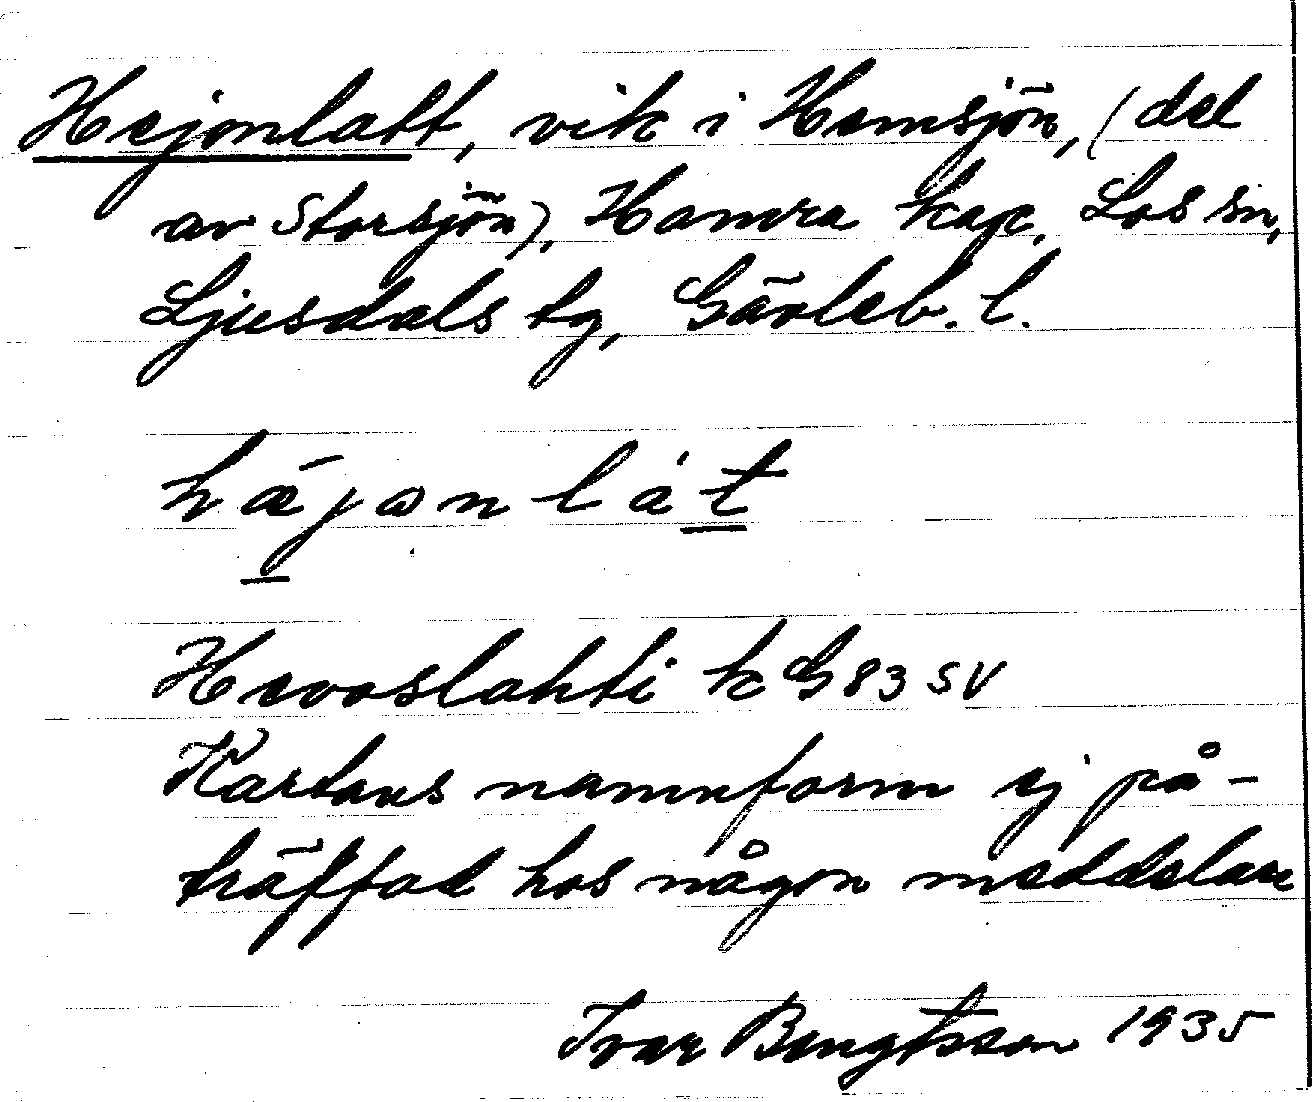 Hejonlatt, vik i Hemsjön, (del
av Storsjön), Hamra kap, Los sn,
Ljusdals tg, Gävleb. l.
häjɷnlàt
Hevoslahti k G 83 SV
Kartans namnform ej på-
träffad hos någon meddelare
Ivar Bengtsson 1935